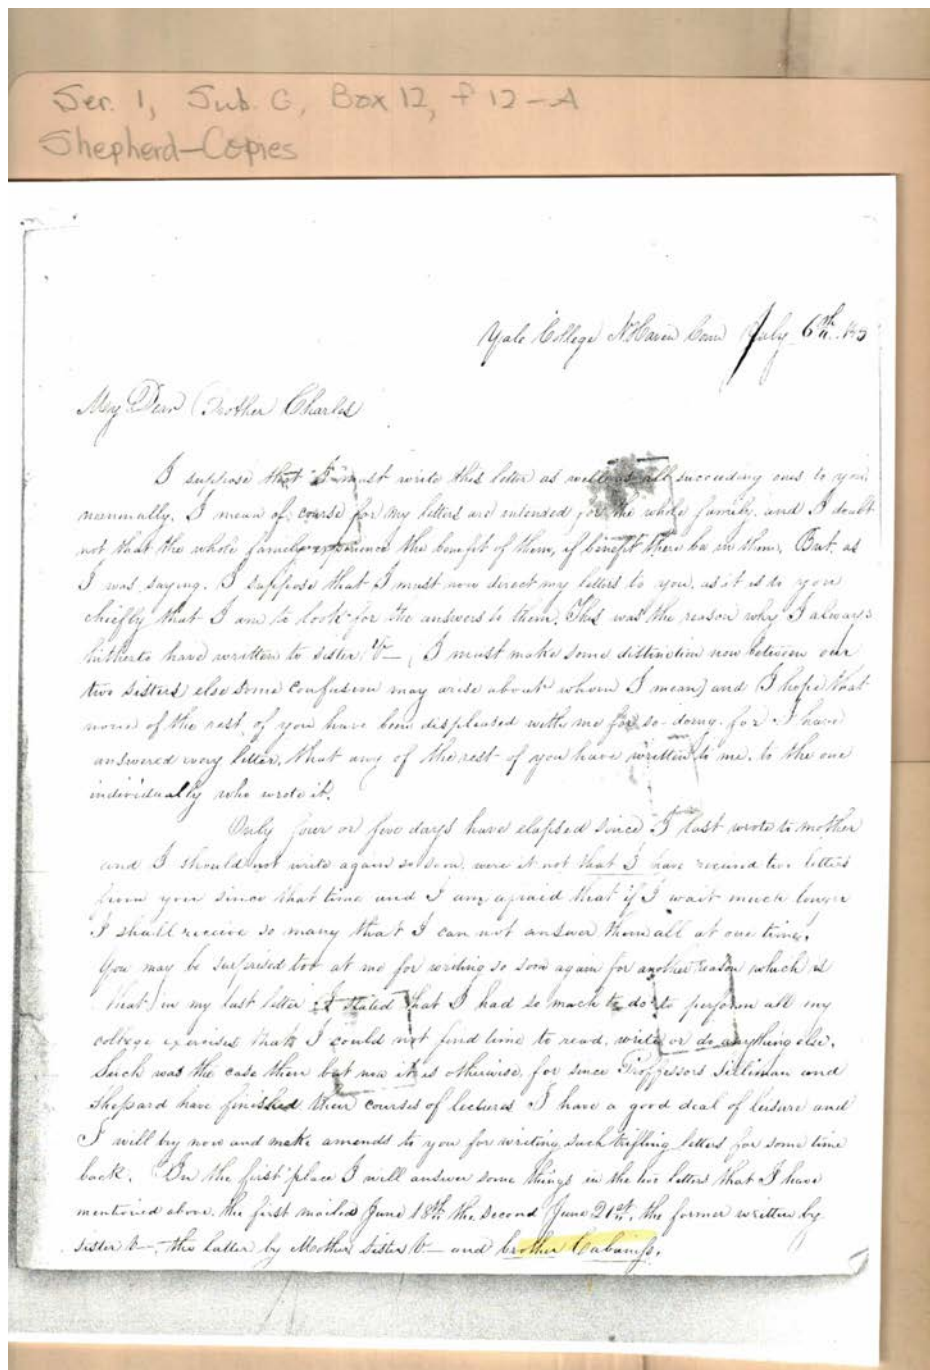 Ser. 1, Sub. G, Box 12, f 12-A
Shepherd-Copies
Yale College N Haven Conn July 6th
My Dear Brother Charles
I suppose that "I" must write this letter as well as all succeeding ones to you
nominally. I mean of course for my letters are intended for the whole family, and I doubt
not that the whole family experience the benefit of them, if benefit there be in them. But as
I was saying. I suppose that I must now direct my letters to you, as it is to you
chiefly that I am to look for the answers to them. This was the reason why I always
hitherto have written to sister V— (I must make some distinction now between our
two sisters else some confusion may arise about whom I mean) and I hope that
none of the rest of you have been displeased with me for so doing. for I have
answered every letter, that any of the rest of you have written to me, to the one
individually who wrote it.
Only four or five days have elapsed since I last wrote to mother
and I should not write again so soon, were it not that I have received two letters
from you since that time and I am afraid that if I wait much longer
I shall receive so many that I can not answer them all at one time.
You may be surprised too at me for writing so soon again for another reason which is
that in my last letter I stated that I had so much to do to perform all my
college exercises that I could not find time to read, write or do anything else.
Such was the case then but now it is otherwise, for since Proffessors Silliman and
Shepard have finished their courses of lectures I have a good deal of leisure and
I will try now and make amends to you for writing such trifling letters for some time
back. In the first place I will answer some things in the two letters that I have
mentioned above, the first mailed June 18th the second June 21st, the former written by
sister V—, the latter by Mother, sister V— and brother